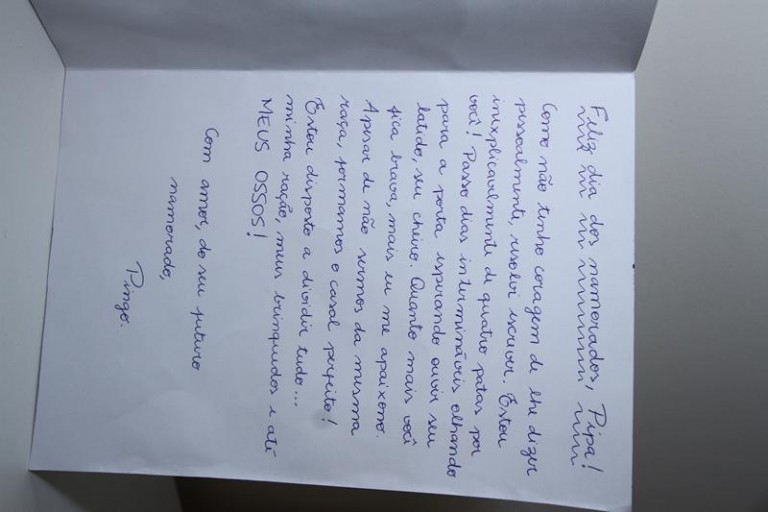 Feliz dia dos namorados, Pipa!
Como não tenho coragem de lhe dizer
pessoalmente, resolvi escrever. Estou
inexplicavelmente de quatro patas por
você! Passo dias intermináveis olhando
para a porta esperando ouvir seu
latido, seu cheiro. Quanto mais você
fica brava, mais eu me apaixono.
Apesar de não sermos da mesma
raça, formamos o casal perfeito!
Estou disposto a dividir tudo...
minha ração, meus brinquedos e até
MEUS OSSOS!
Com amor, do seu futuro
namorado,
Pingo.